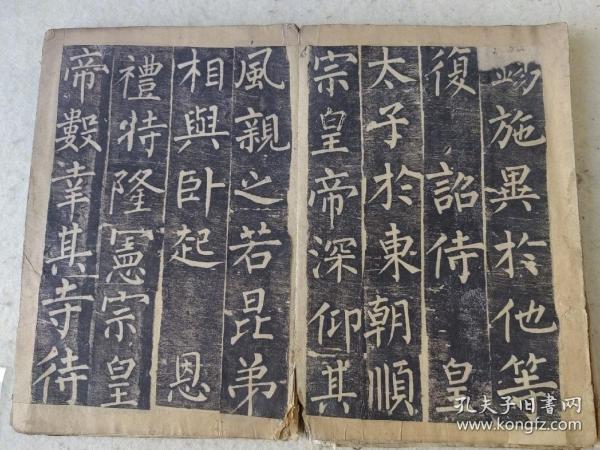 施異於他等
復 詔侍 皇
太子於東朝順
宗皇帝深仰其
風親之若昆弟
相與卧起 恩
禮特隆憲宗皇
帝數幸其寺待
孔夫子旧書网
www.kongfz.com